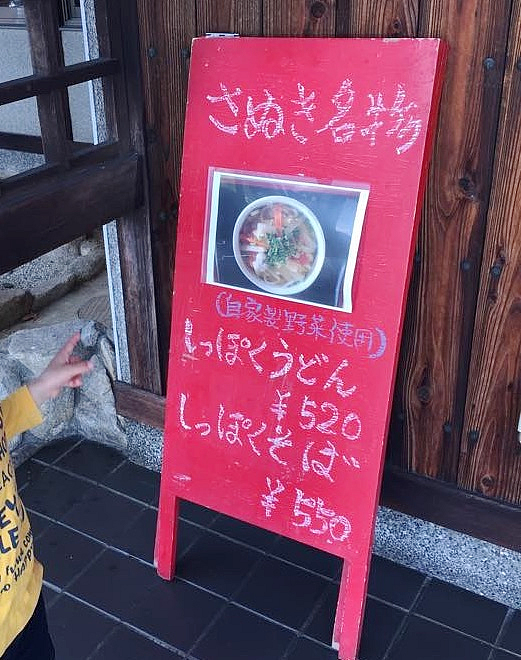 さぬき名物
(自家製野菜使用)
しっぽくうどん
¥520
しっぽくそば
¥550